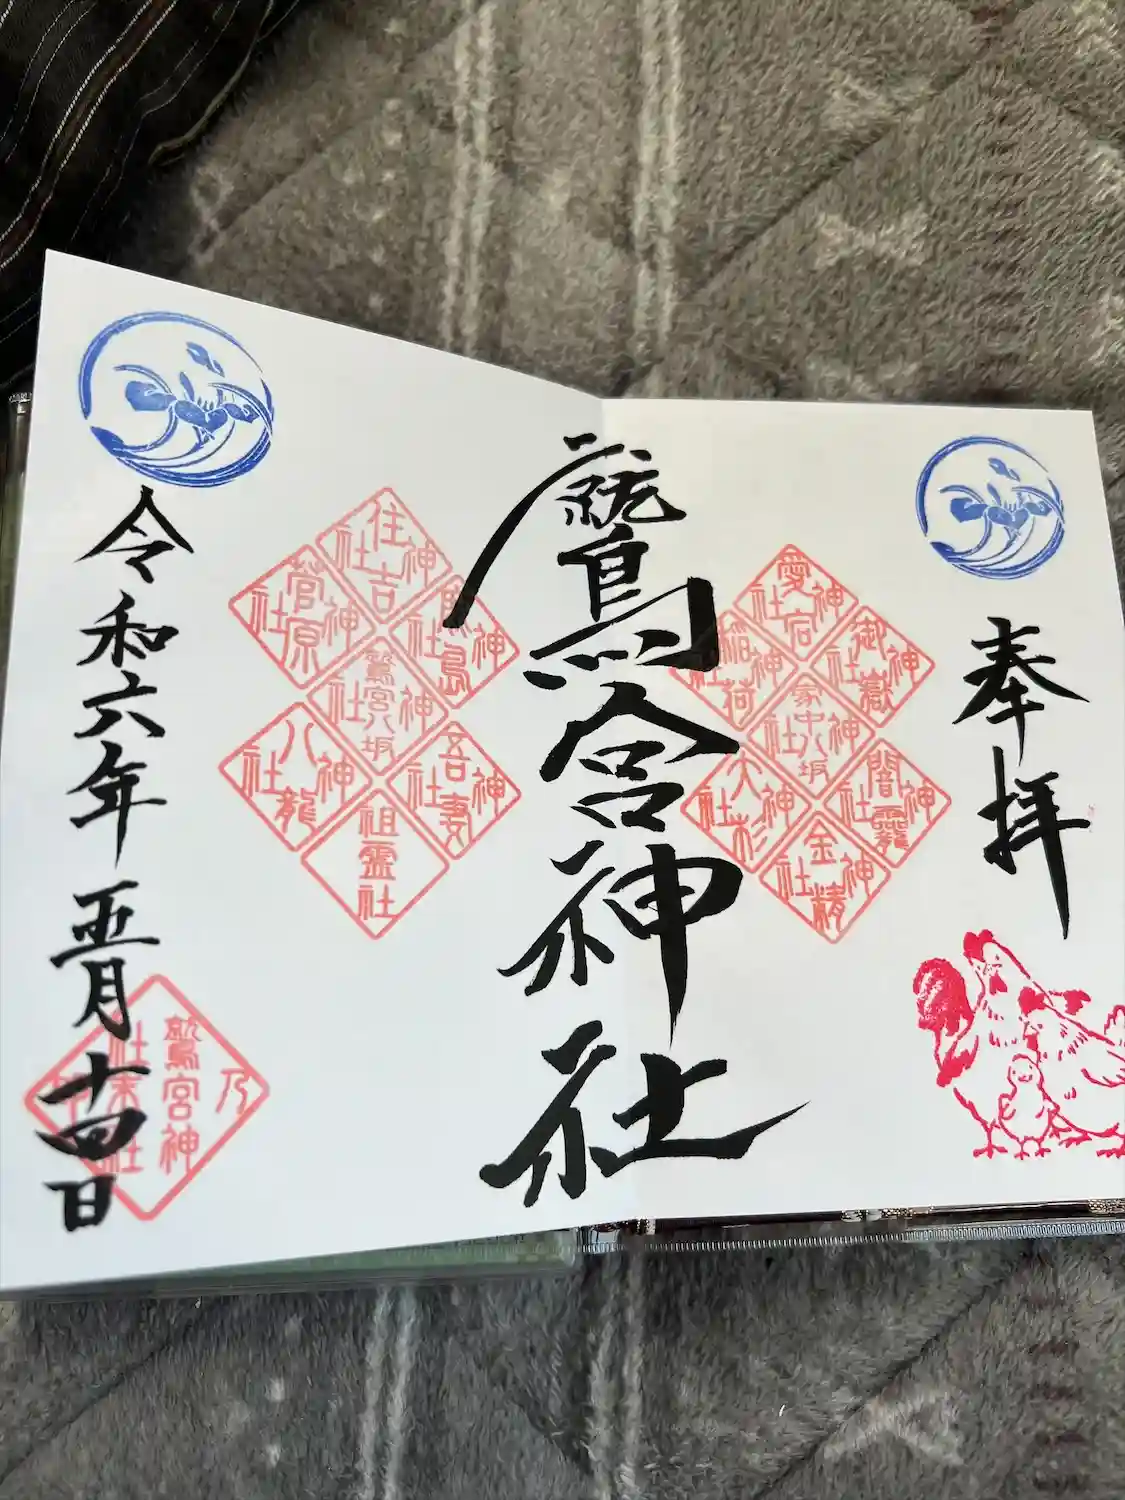 奉拝
愛宕神社
御嶽神社
稲荷神社
家中八坂神社
闇龗神社
大杉神社
金精神社
鷲宮神社
住吉神社
菅原神社
厳島神社
鷲宮八坂神社
吾妻神社
八龍神社
祖霊社
令和六年五月十四日
鷲宮神